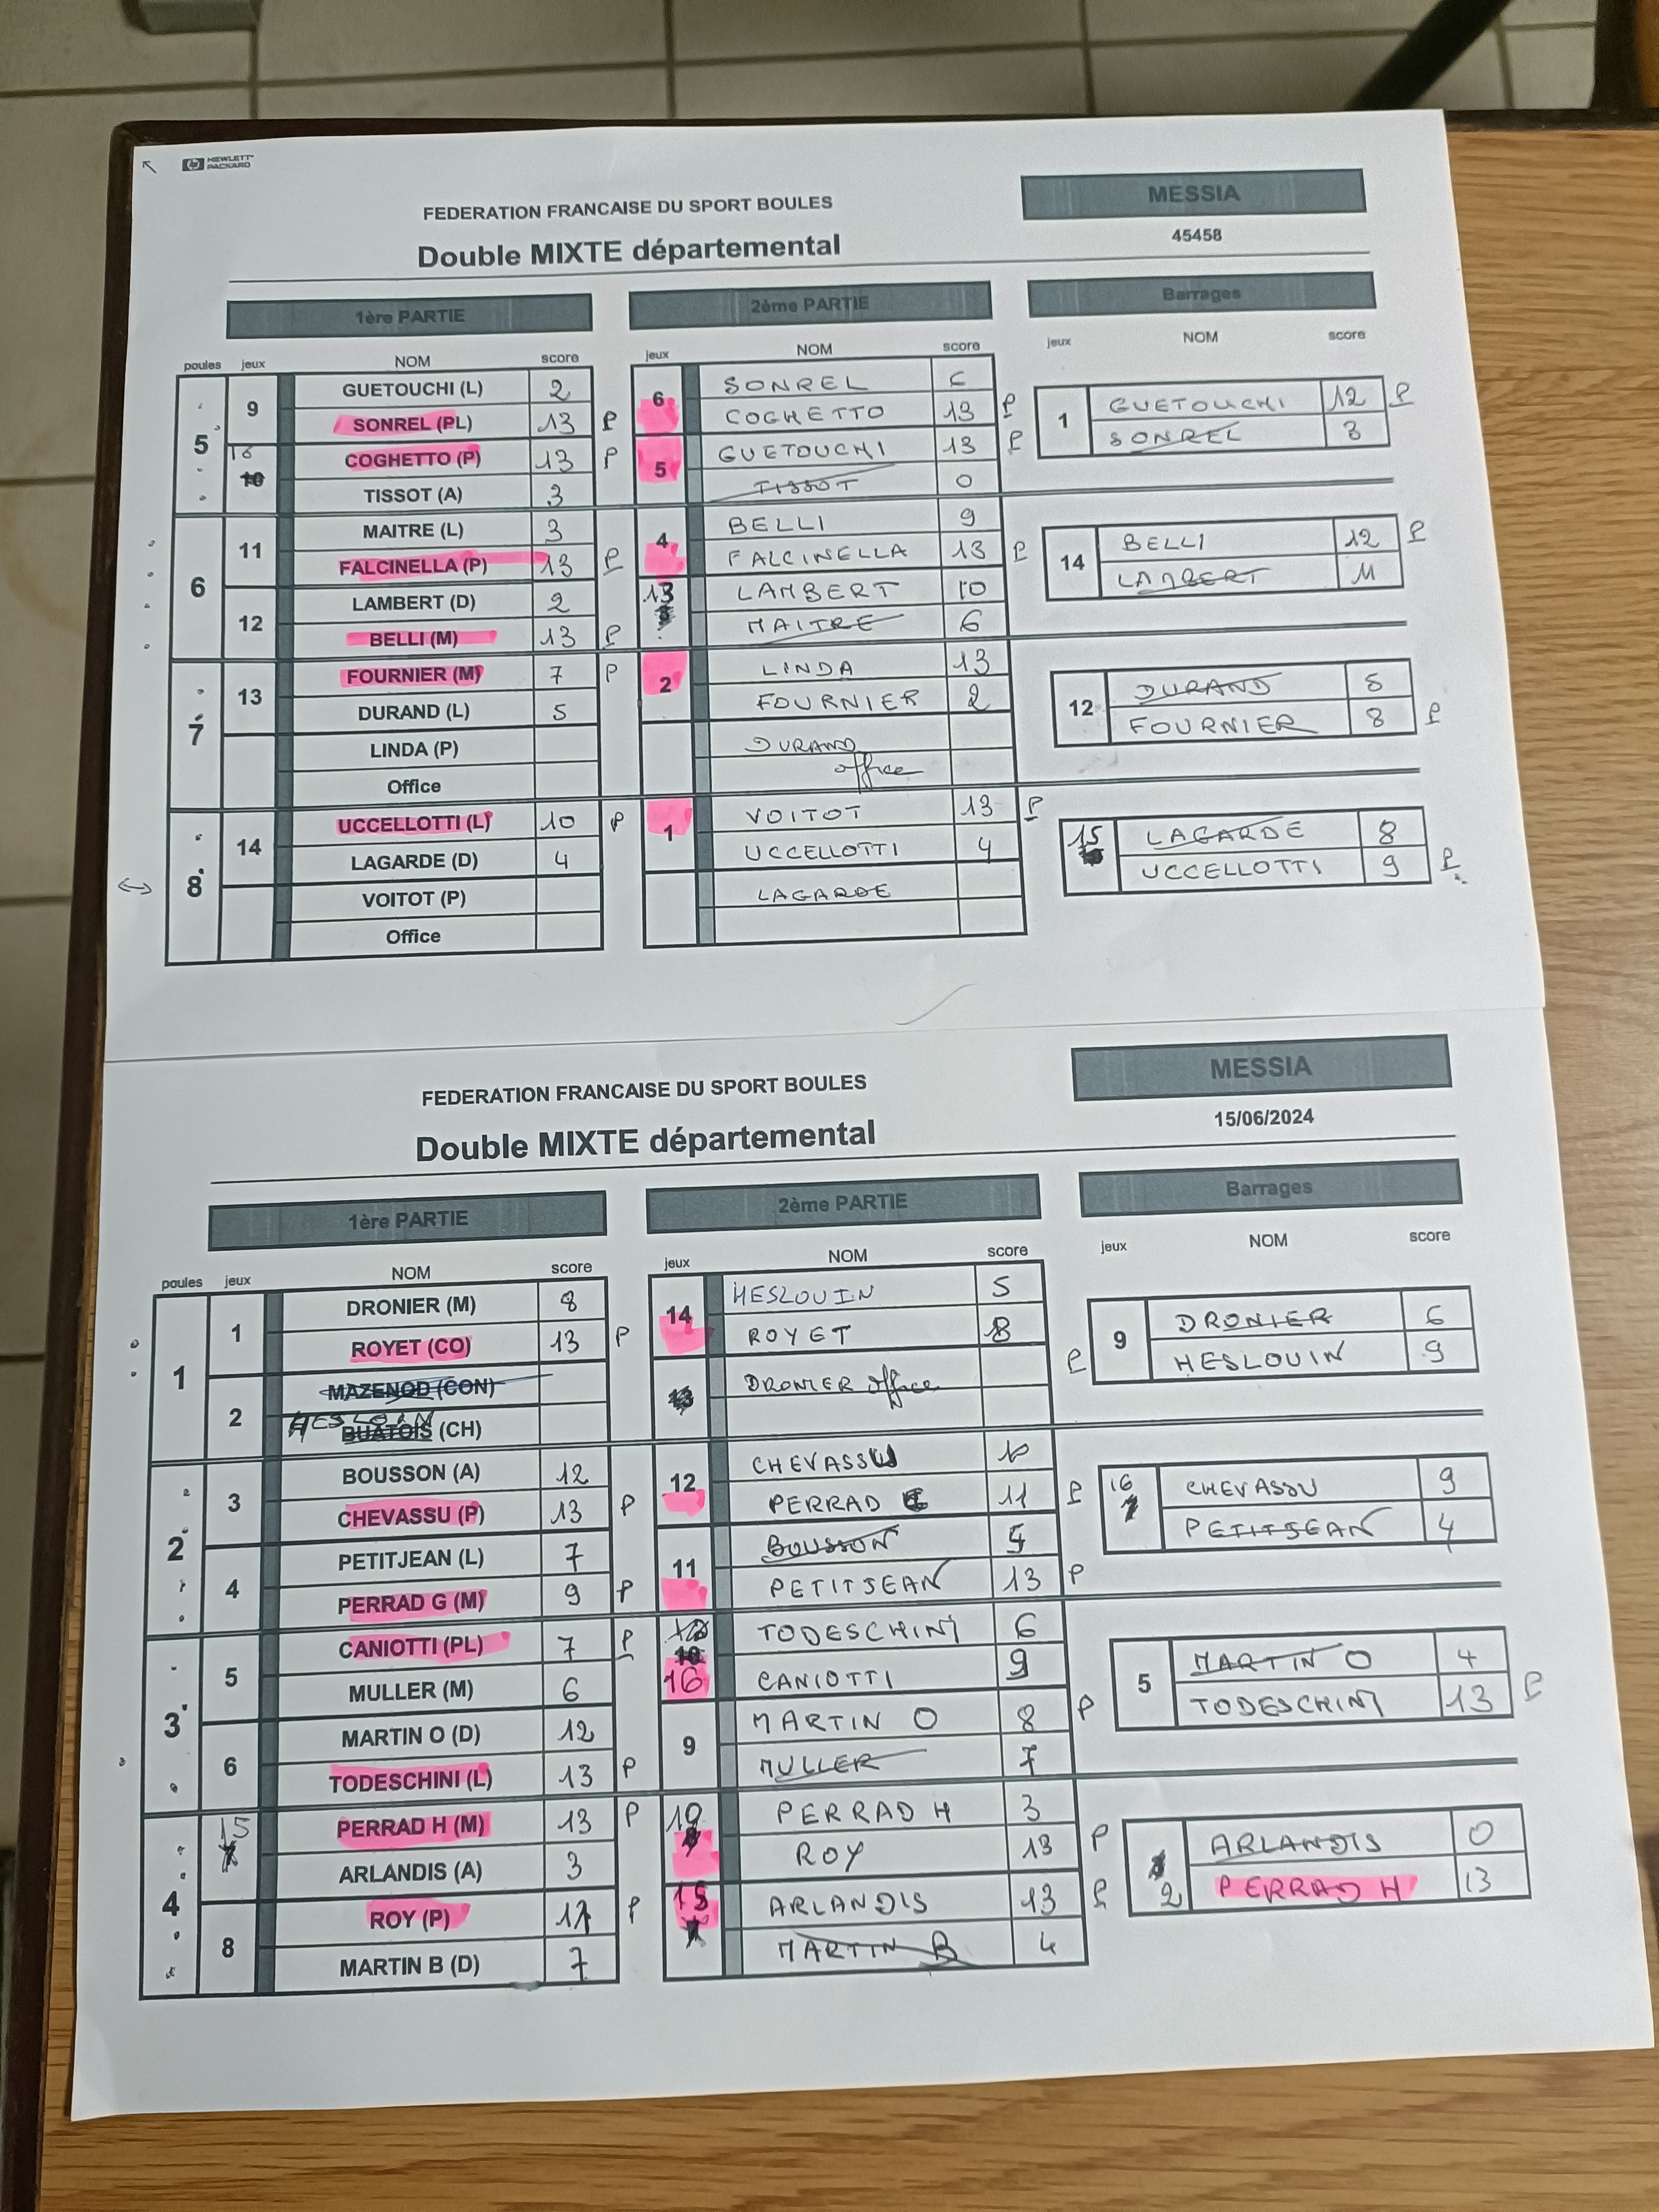 HEWLETT PACKARD
FEDERATION FRANCAISE DU SPORT BOULES
MESSIA
Double MIXTE départemental
45458
1ère PARTIE 2ème PARTIE Barrages
poules jeux NOM score jeux NOM score jeux NOM score
5
9 GUETOUCHI (L) 2
SONREL (PL) 13 P
COGHETTO (P) 13 P
TISSOT (A) 3
6 SONREL 6
COGHETTO 13 P
5 GUETOUCHI 13 P
TISSOT 0
1 GUETOUCHI 12 P
SONREL 3
6
11 MAITRE (L) 3
FALCINELLA (P) 13 P
12 LAMBERT (D) 2
BELLI (M) 13 P
4 BELLI 9
FALCINELLA 13 P
13 LAMBERT 10
MAITRE 6
14 BELLI 12 P
LAMBERT 11
7
13 FOURNIER (M) 7 P
DURAND (L) 5
LINDA (P)
Office
2 LINDA 13
FOURNIER 2
DURAND
office
12 DURAND
FOURNIER 8 P
8
14 UCCELLOTTI (L) 10 P
LAGARDE (D) 4
VOITOT (P)
Office
1 VOITOT 13 P
UCCELLOTTI 4
LAGARDE
15 LAGARDE 8
UCCELLOTTI 9 P
FEDERATION FRANCAISE DU SPORT BOULES
MESSIA
Double MIXTE départemental
15/06/2024
1ère PARTIE 2ème PARTIE Barrages
poules jeux NOM score jeux NOM score jeux NOM score
1
1 DRONIER (M) 8
ROYET (CO) 13 P
2 MAZENOD (CON)
HESLOIN
BUATOIS (CH)
14 HESLOUIN 5
ROYET
DRONIER office
9 DRONIER 6
P HESLOUIN 9
2
3 BOUSSON (A) 12
CHEVASSU (P) 13 P
4 PETITJEAN (L) 7
PERRAD G (M) 9 P
12 CHEVASSU 10
PERRAD 11 P
11 BOUSSON
PETITJEAN 13 P
16 CHEVASSU 9
PETITJEAN 4
3
5 CANIOTTI (PL) 7 P
MULLER (M) 6
6 MARTIN O (D) 12
TODESCHINI (L) 13 P
16 TODESCHINI 6
CANIOTTI 9
9 MARTIN O 8 P
MULLER 7
5 MARTIN O 4
TODESCHINI 13 P
4
15 PERRAD H (M) 13 P
ARLANDIS (A) 3
8 ROY (P) P
MARTIN B (D) 7
10 PERRAD H 3
ROY 13 P
15 ARLANDIS 13 P
MARTIN B 4
2 ARLANDIS 0
PERRAD H 13